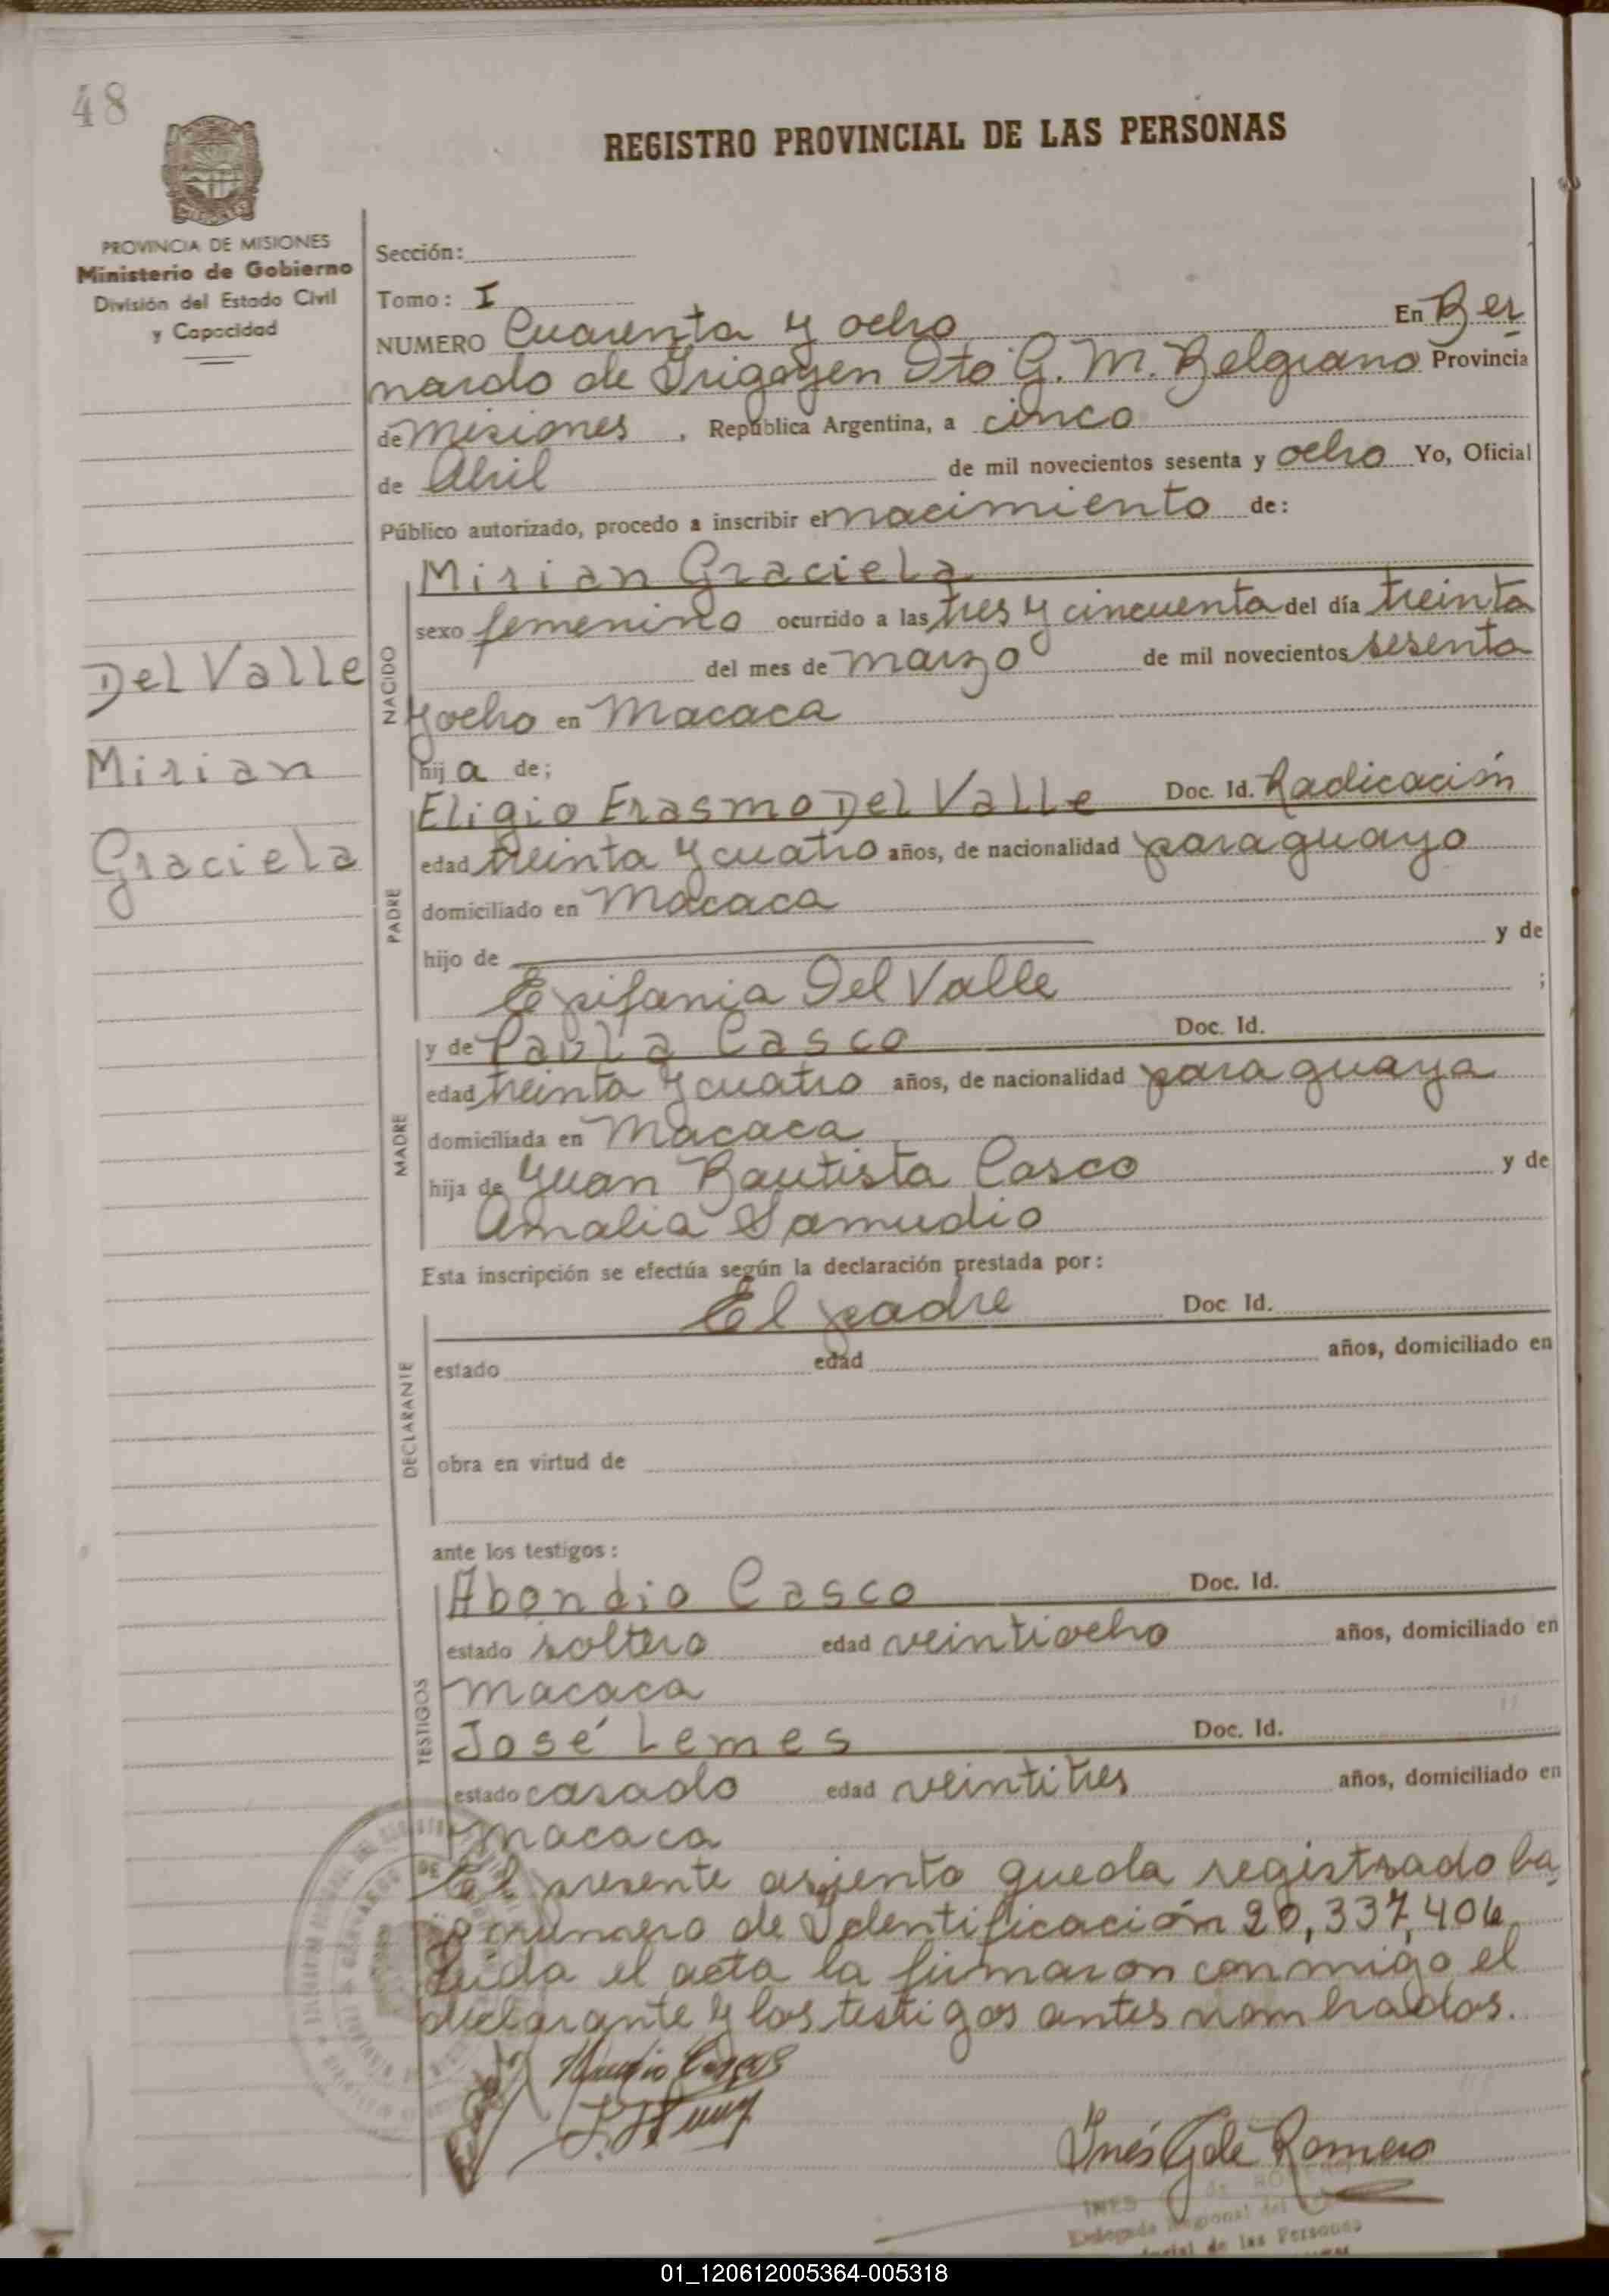 48
REGISTRO PROVINCIAL DE LAS PERSONAS
PROVINCIA DE MISIONES
Ministerio de Gobierno
División del Estado Civil
y Capacidad
Sección:
Tomo: I
NUMERO Cuarenta y ocho En Ber
nardo de Irigoyen Dto G. M. Belgrano Provincia
de Misiones , República Argentina, a cinco
de Abril de mil novecientos sesenta y ocho Yo, Oficial
Público autorizado, procedo a inscribir el nacimiento de:
Mirian Graciela
sexo femenino ocurrido a las tres y cincuenta del día treinta
del mes de marzo de mil novecientos sesenta
y ocho en Macaca
hija de;
Del Valle
Mirian
Graciela
NACIDO
Eligio Erasmo Del Valle Doc. Id. Radicación
edad treinta y cuatro años, de nacionalidad paraguayo
domiciliado en Macaca
hijo de y de
Epifania Del Valle ;
PADRE
y de Paula Casco Doc. Id.
edad treinta y cuatro años, de nacionalidad paraguaya
domiciliada en Macaca
hija de Juan Bautista Casco y de
Amalia Samudio
MADRE
Esta inscripción se efectúa según la declaración prestada por:
El padre Doc. Id.
estado edad años, domiciliado en
obra en virtud de
DECLARANTE
ante los testigos:
Abondio Casco Doc. Id.
estado soltero edad veintiocho años, domiciliado en
Macaca
José Lemes Doc. Id.
estado casado edad veintitres años, domiciliado en
Macaca
TESTIGOS
El presente asiento queda registrado ba
jo número de Identificación 20,337,406
Leída el acta la firmaron conmigo el
declarante y los testigos antes nombrados.
Inés G de Romero
INES de
Regional del
de las Personas
01_120612005364-005318